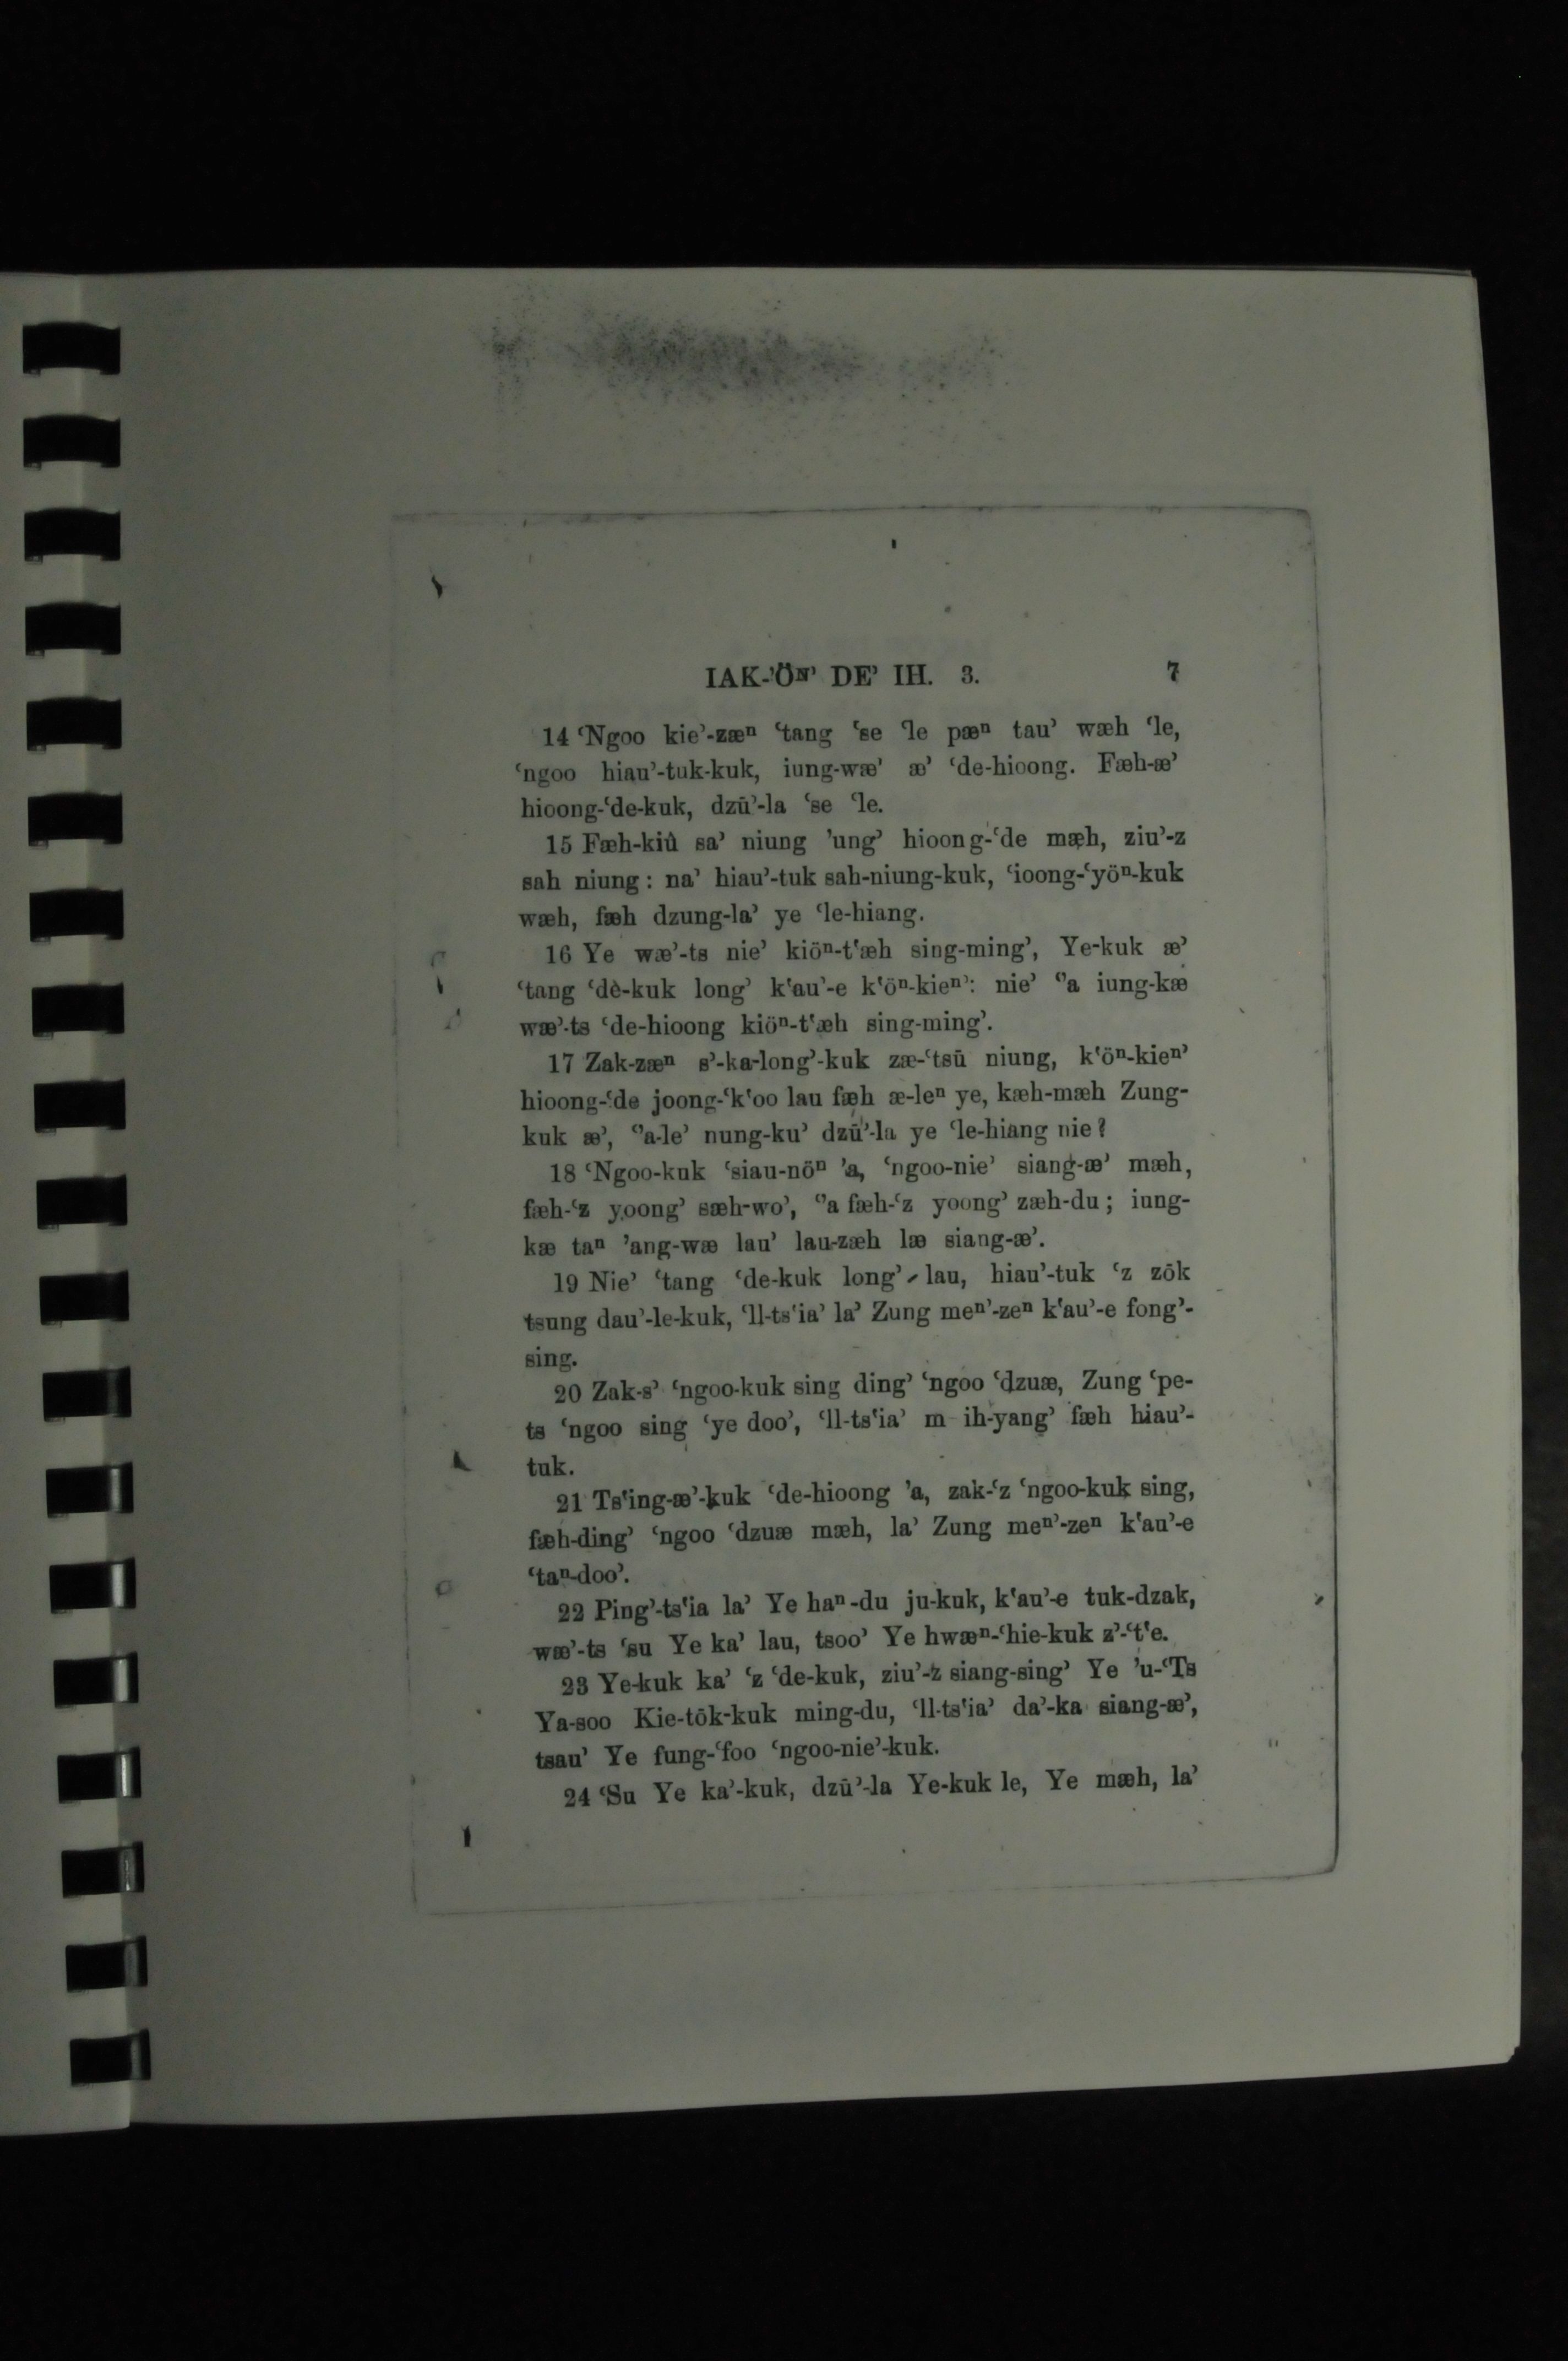 IAK-’Öᴺ’ DE’ IH. 3. 7
14 ‘Ngoo kie’-zæⁿ ‘tang ‘se ‘le pæⁿ tau’ wæh ‘le,
‘ngoo hiau’-tuk-kuk, iung-wæ’ æ’ ‘de-hioong. Fæh-æ’
hioong-‘de-kuk, dzū’-la ‘se ‘le.
15 Fæh-kiû sa’ niung ’ung’ hioong-‘de mæh, ziu’-z
sah niung: na’ hiau’-tuk sah-niung-kuk, ‘ioong-‘yöⁿ-kuk
wæh, fæh dzung-la’ ye ‘le-hiang.
16 Ye wæ’-ts nie’ kiöⁿ-t‘æh sing-ming’, Ye-kuk æ’
‘tang ‘de-kuk long’ k‘au’-e k‘öⁿ-kieⁿ’: nie’ ‘’a iung-kæ
wæ’-ts ‘de-hioong kiöⁿ-t‘æh sing-ming’.
17 Zak-zæⁿ s’-ka-long’-kuk zæ-‘tsū niung, k‘öⁿ-kieⁿ’
hioong-‘de joong-‘k‘oo lau fæh æ-leⁿ ye, kæh-mæh Zung-
kuk æ’, ‘’a-le’ nung-ku’ dzū’-la ye ‘le-hiang nie?
18 ‘Ngoo-kuk ‘siau-nöⁿ ’a, ‘ngoo-nie’ siang-æ’ mæh,
fæh-‘z yoong’ sæh-wo’, ‘’a fæh-‘z yoong’ zæh-du; iung-
kæ taⁿ ’ang-wæ lau’ lau-zæh læ siang-æ’.
19 Nie’ ‘tang ‘de-kuk long’ lau, hiau’-tuk ‘z zōk
tsung dau’-le-kuk, ‘ll-ts‘ia’ la’ Zung meⁿ’-zeⁿ k‘au’-e fong’-
sing.
20 Zak-s’ ‘ngoo-kuk sing ding’ ‘ngoo ‘dzuæ, Zung ‘pe-
ts ‘ngoo sing ‘ye doo’, ‘ll-ts‘ia’ m ih-yang’ fæh hiau’-
tuk.
21 Ts‘ing-æ’-kuk ‘de-hioong ’a, zak-‘z ‘ngoo-kuk sing,
fæh-ding’ ‘ngoo ‘dzuæ mæh, la’ Zung meⁿ’-zeⁿ k‘au’-e
‘taⁿ-doo’.
22 Ping’-ts‘ia la’ Ye haⁿ-du ju-kuk, k‘au’-e tuk-dzak,
wæ’-ts ‘su Ye ka’ lau, tsoo’ Ye hwæⁿ-‘hie-kuk z’-‘t‘e.
23 Ye-kuk ka’ ‘z ‘de-kuk, ziu’-z siang-sing’ Ye ’u-‘Ts
Ya-soo Kie-tōk-kuk ming-du, ‘ll-ts‘ia’ da’-ka siang-æ’,
tsau’ Ye fung-‘foo ‘ngoo-nie’-kuk.
24 ‘Su Ye ka’-kuk, dzū’-la Ye-kuk le, Ye mæh, la’